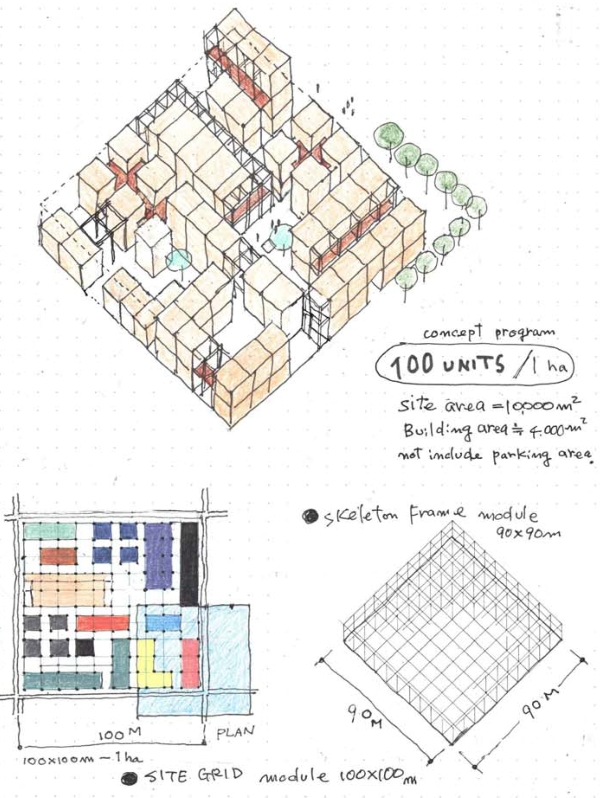 concept program
100 UNITS / 1 ha
site area = 10,000 m²
Building area ≒ 4,000 m²
not include parking area.
● SKeleton Frame module
90x90m
90M
90M
100M
PLAN
100x100m — 1ha
● SITE GRID module 100x100m